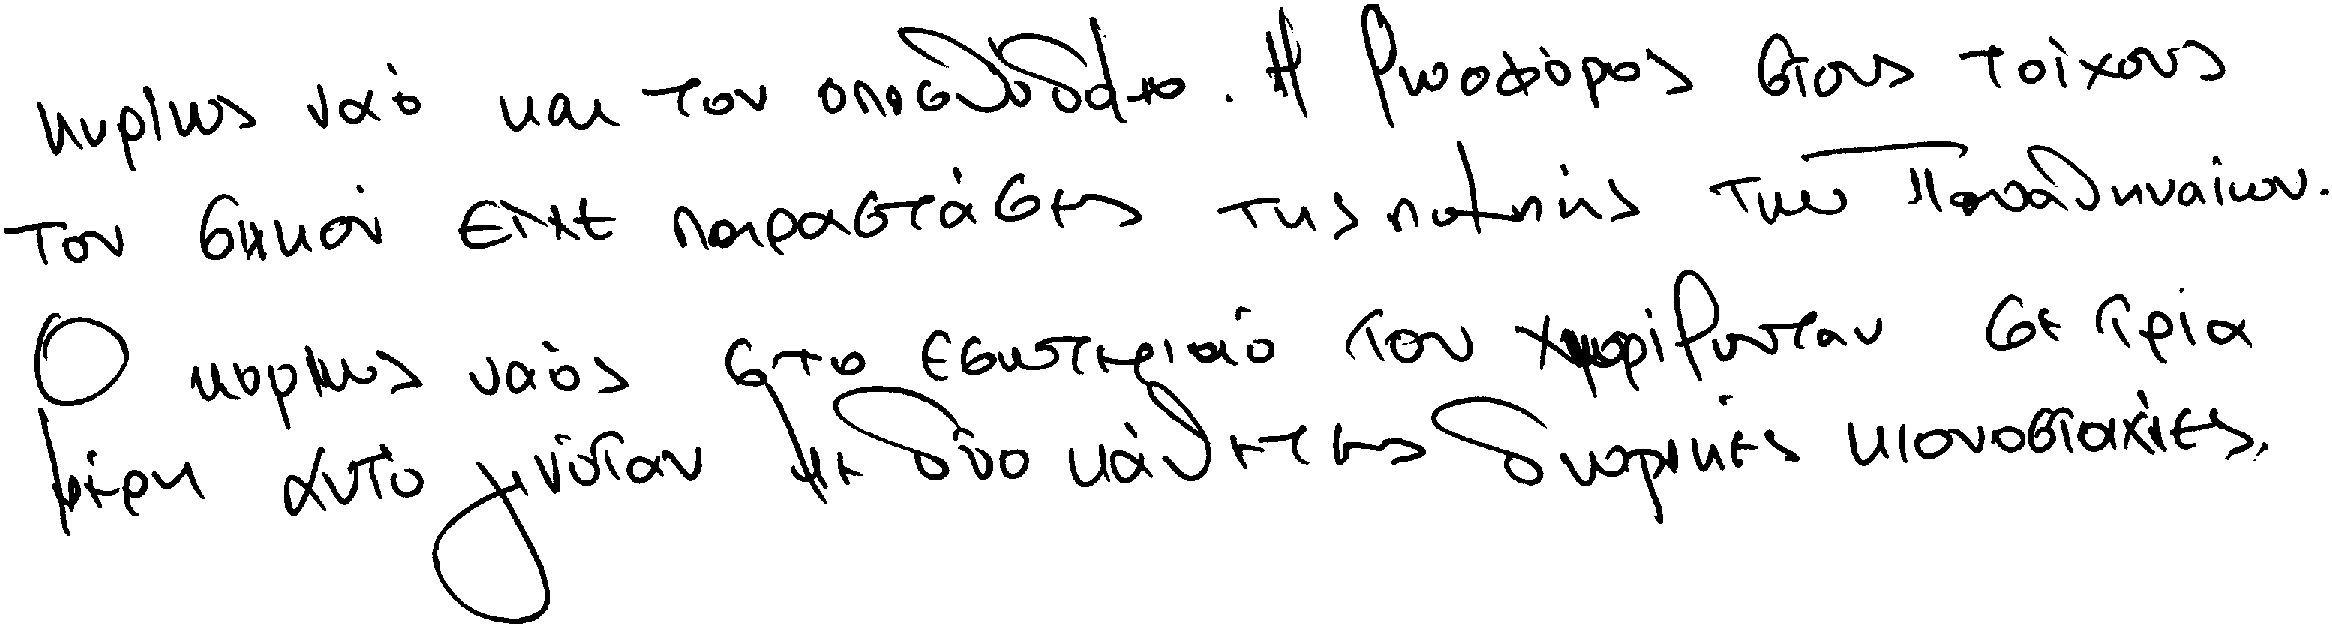 κυρίως ναό και τον οπισθόδομο. Η ζωοφόρος στους τοίχους
του σηκού είχε παραστάσεις της πομπής των Παναθηναίων.
Ο κυρίως ναός στο εσωτερικό του χωριζόνταν σε τρία
μέρη αυτό γινόταν με δύο κάθετες δωρικές κιονοστοιχίες.